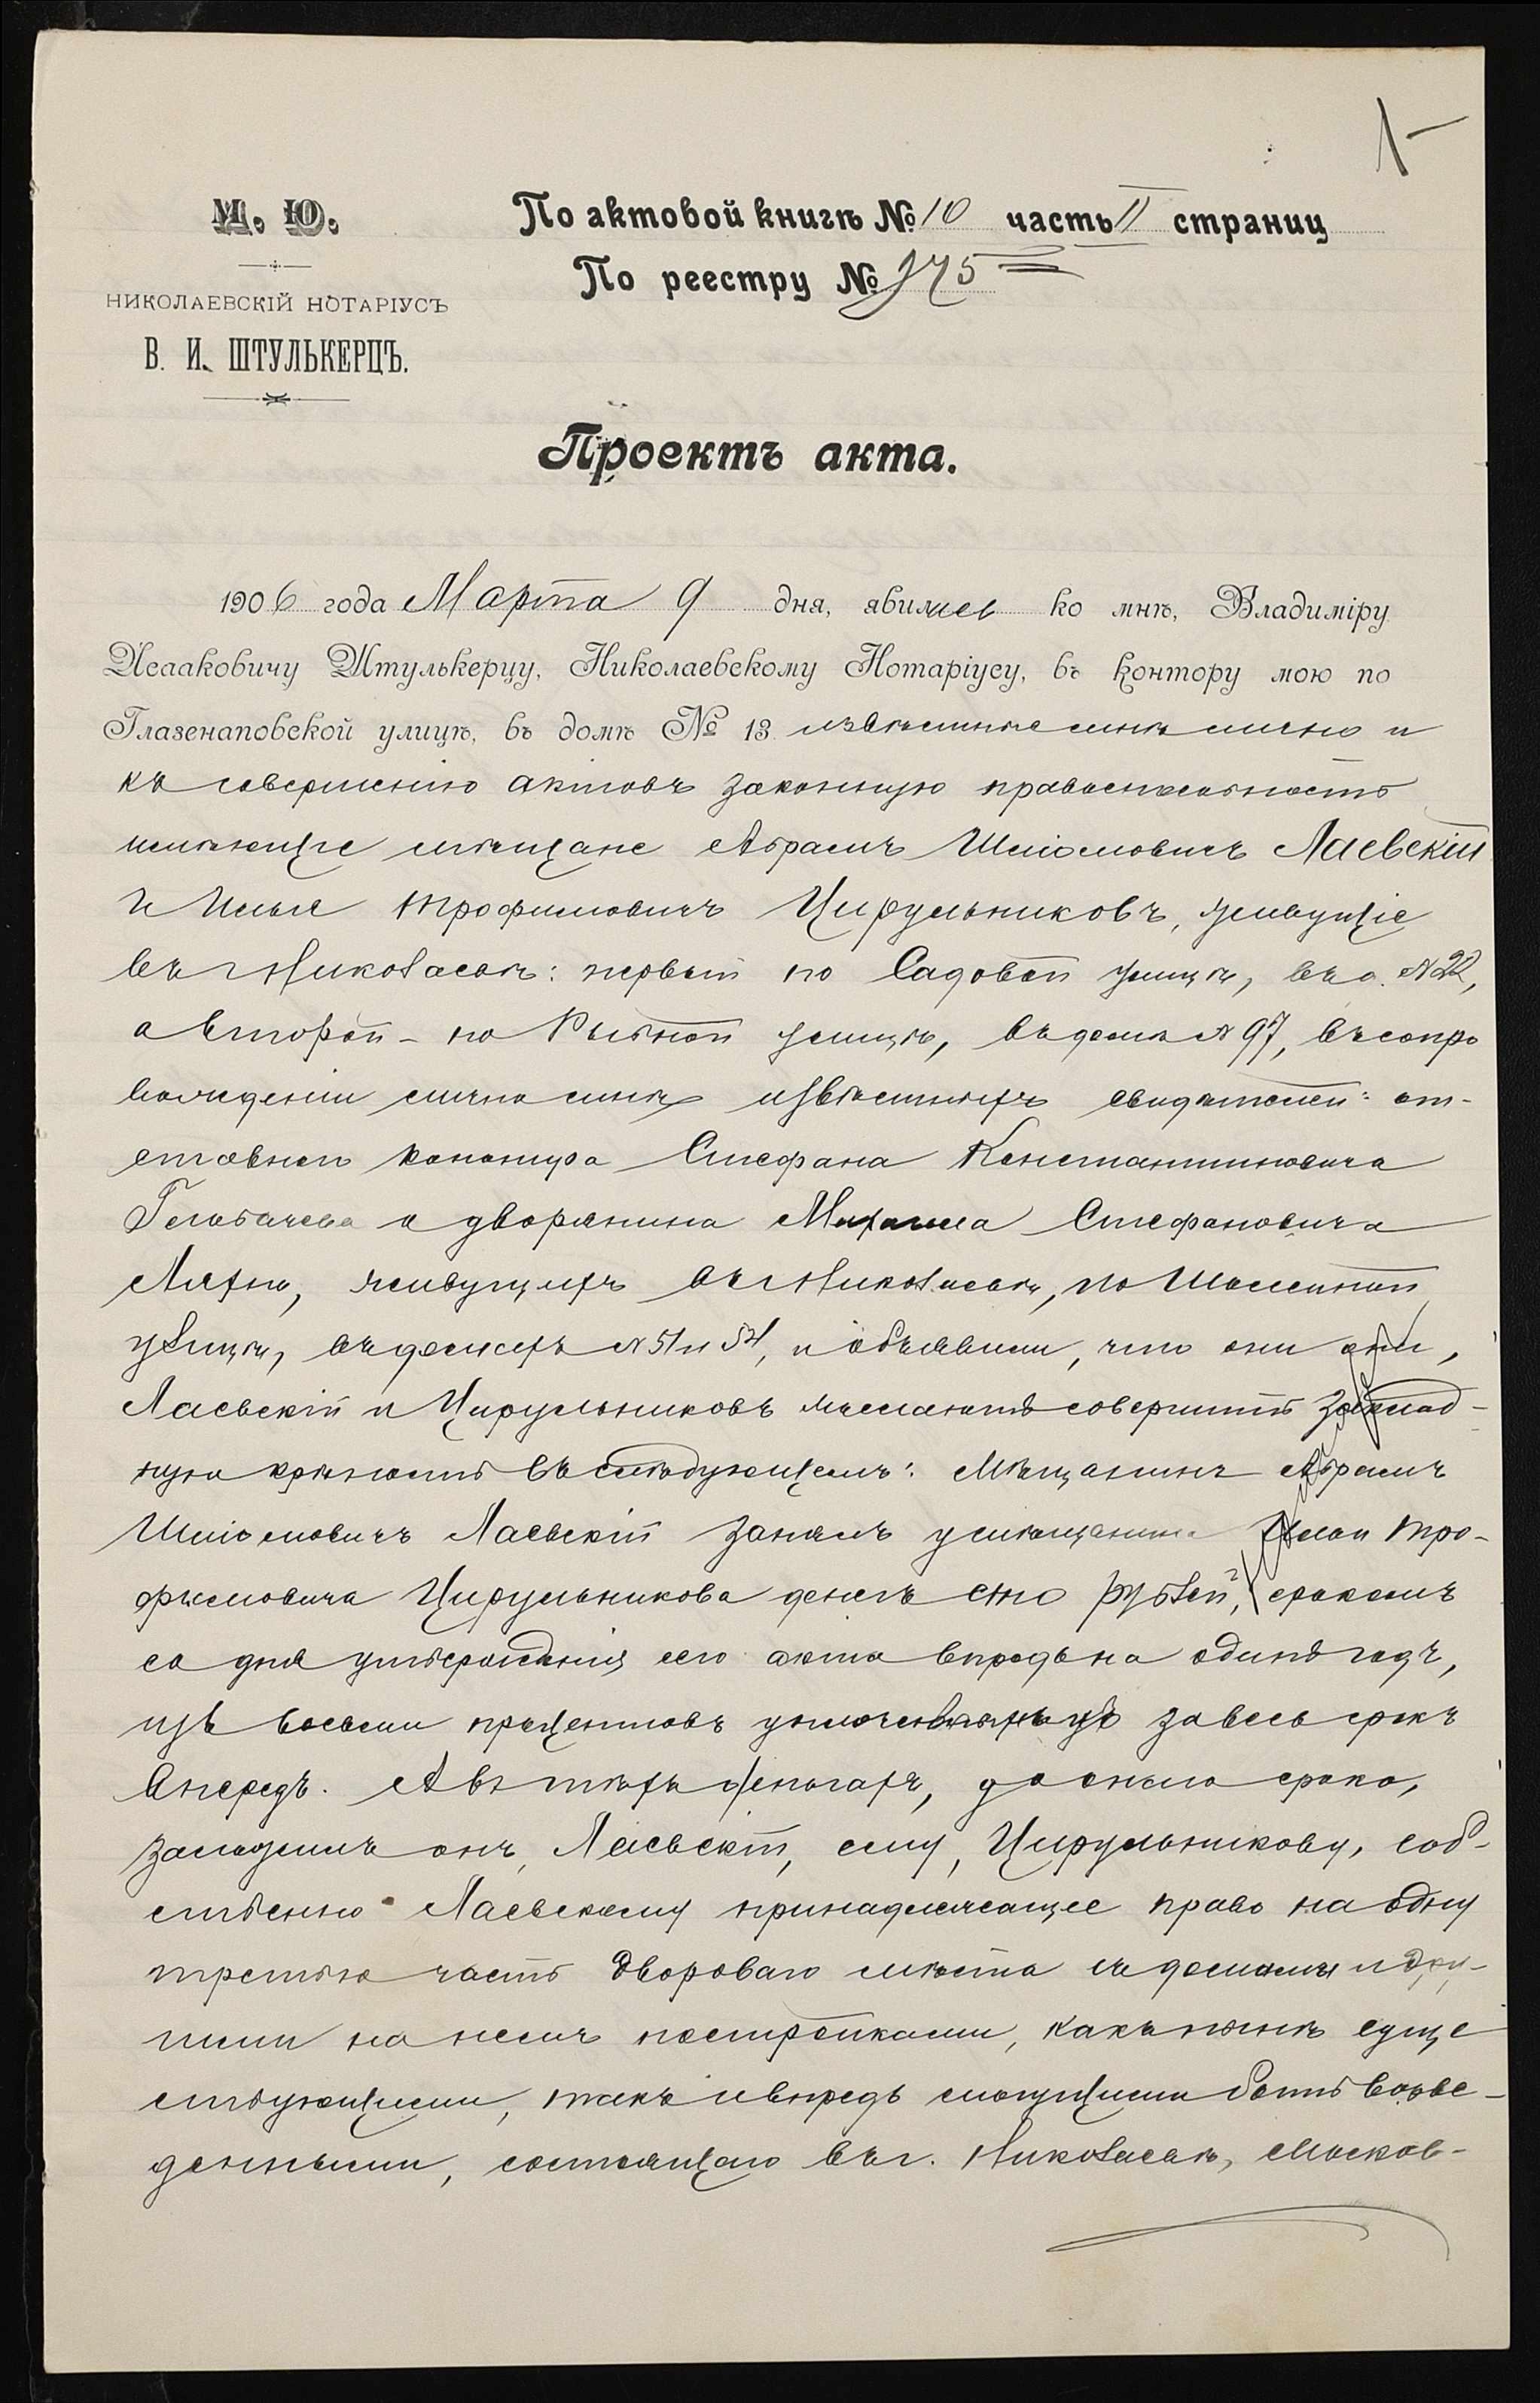 1
М. Ю.
НИКОЛАЕВСКІЙ НОТАРІУСЪ
В. И. ШТУЛЬКЕРЦЪ.
По актовой книгѣ № 10 часть II страниц
По реестру № 975
Проектъ акта.
1906 года Марта 9 дня, явились ко мнѣ, Владиміру
Исааковичу Штулькерцу, Николаевскому Нотаріусу, въ контору мою по
Глазенаповской улицѣ, въ домѣ № 13 извѣстные мнѣ лично и
къ совершенію актовъ законную правоспособность
имѣющіе мѣщане Абрамъ Шліомовичъ Лаевскій
и Илья Трофимовичъ Цирульниковъ, живущіе
въ г. Николаевѣ: первый по Садовой улицѣ, въ д. № 22,
а второй - по Рыбной улицѣ, въ домѣ № 97, въ сопро
вожденіи лично мнѣ извѣстныхъ свидѣтелей: от-
ставного Стефана Константиновича
и дворянина Михаила Стефановича
живущихъ въ г. Николаевѣ, по
улицѣ, въ домахъ № 51 и 54, и объявили, что они
Лаевскій и Цирульниковъ желаютъ совершить заклад-
ную крѣпость въ слѣдующемъ: мѣщанинъ Абрамъ
Шліомовичъ Лаевскій занялъ у мѣщанина Ильи Тро-
фимовича Цирульникова денегъ сто рублей, срокомъ
со дня утвержденія сего акта впредь на одинъ годъ,
изъ восьми процентовъ за весь срокъ
впередъ. А въ тѣхъ деньгахъ, до онаго срока,
заложилъ онъ, Лаевскій, ему, Цирульникову, соб-
ственно Лаевскому принадлежащее право на одну
третью часть двороваго мѣста съ домами и дру-
гими на немъ постройками, какъ нынѣ суще
ствующими, такъ и впредь могущими быть возве-
денными, состоящаго въ г. Николаевѣ, Москов-